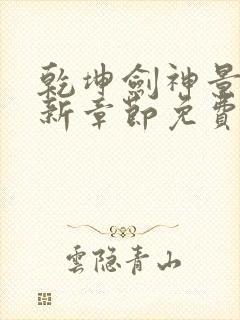 乾坤劍神景
新章節免費
雲隐青山